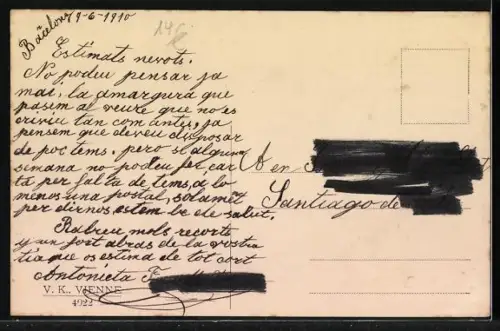 Bacelona 9-6-1910
146
Estimats nevots.
No podeu pensar ja
mai, la amargura que
pasem al veure que no es
criviu tan com antes, ja
pensem que deveu disposar
de poc tems, pero si alguna
semana no podeu fer, car
ta per falta de tems, a lo
menos una postal, solamet
per dirnos estem be de salut.
Rabreu mols recorts
y un fort abras de la vostra
tia que os estima de tot cort
Antonieta F
A en
Santiago de
V. K., VIENNE
4922